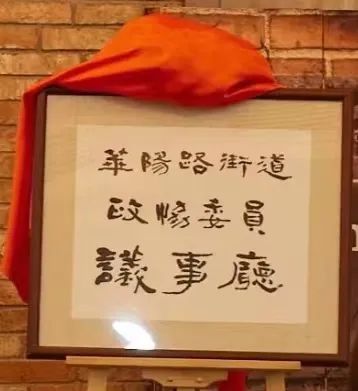 華陽路街道
政協委員
議事廳